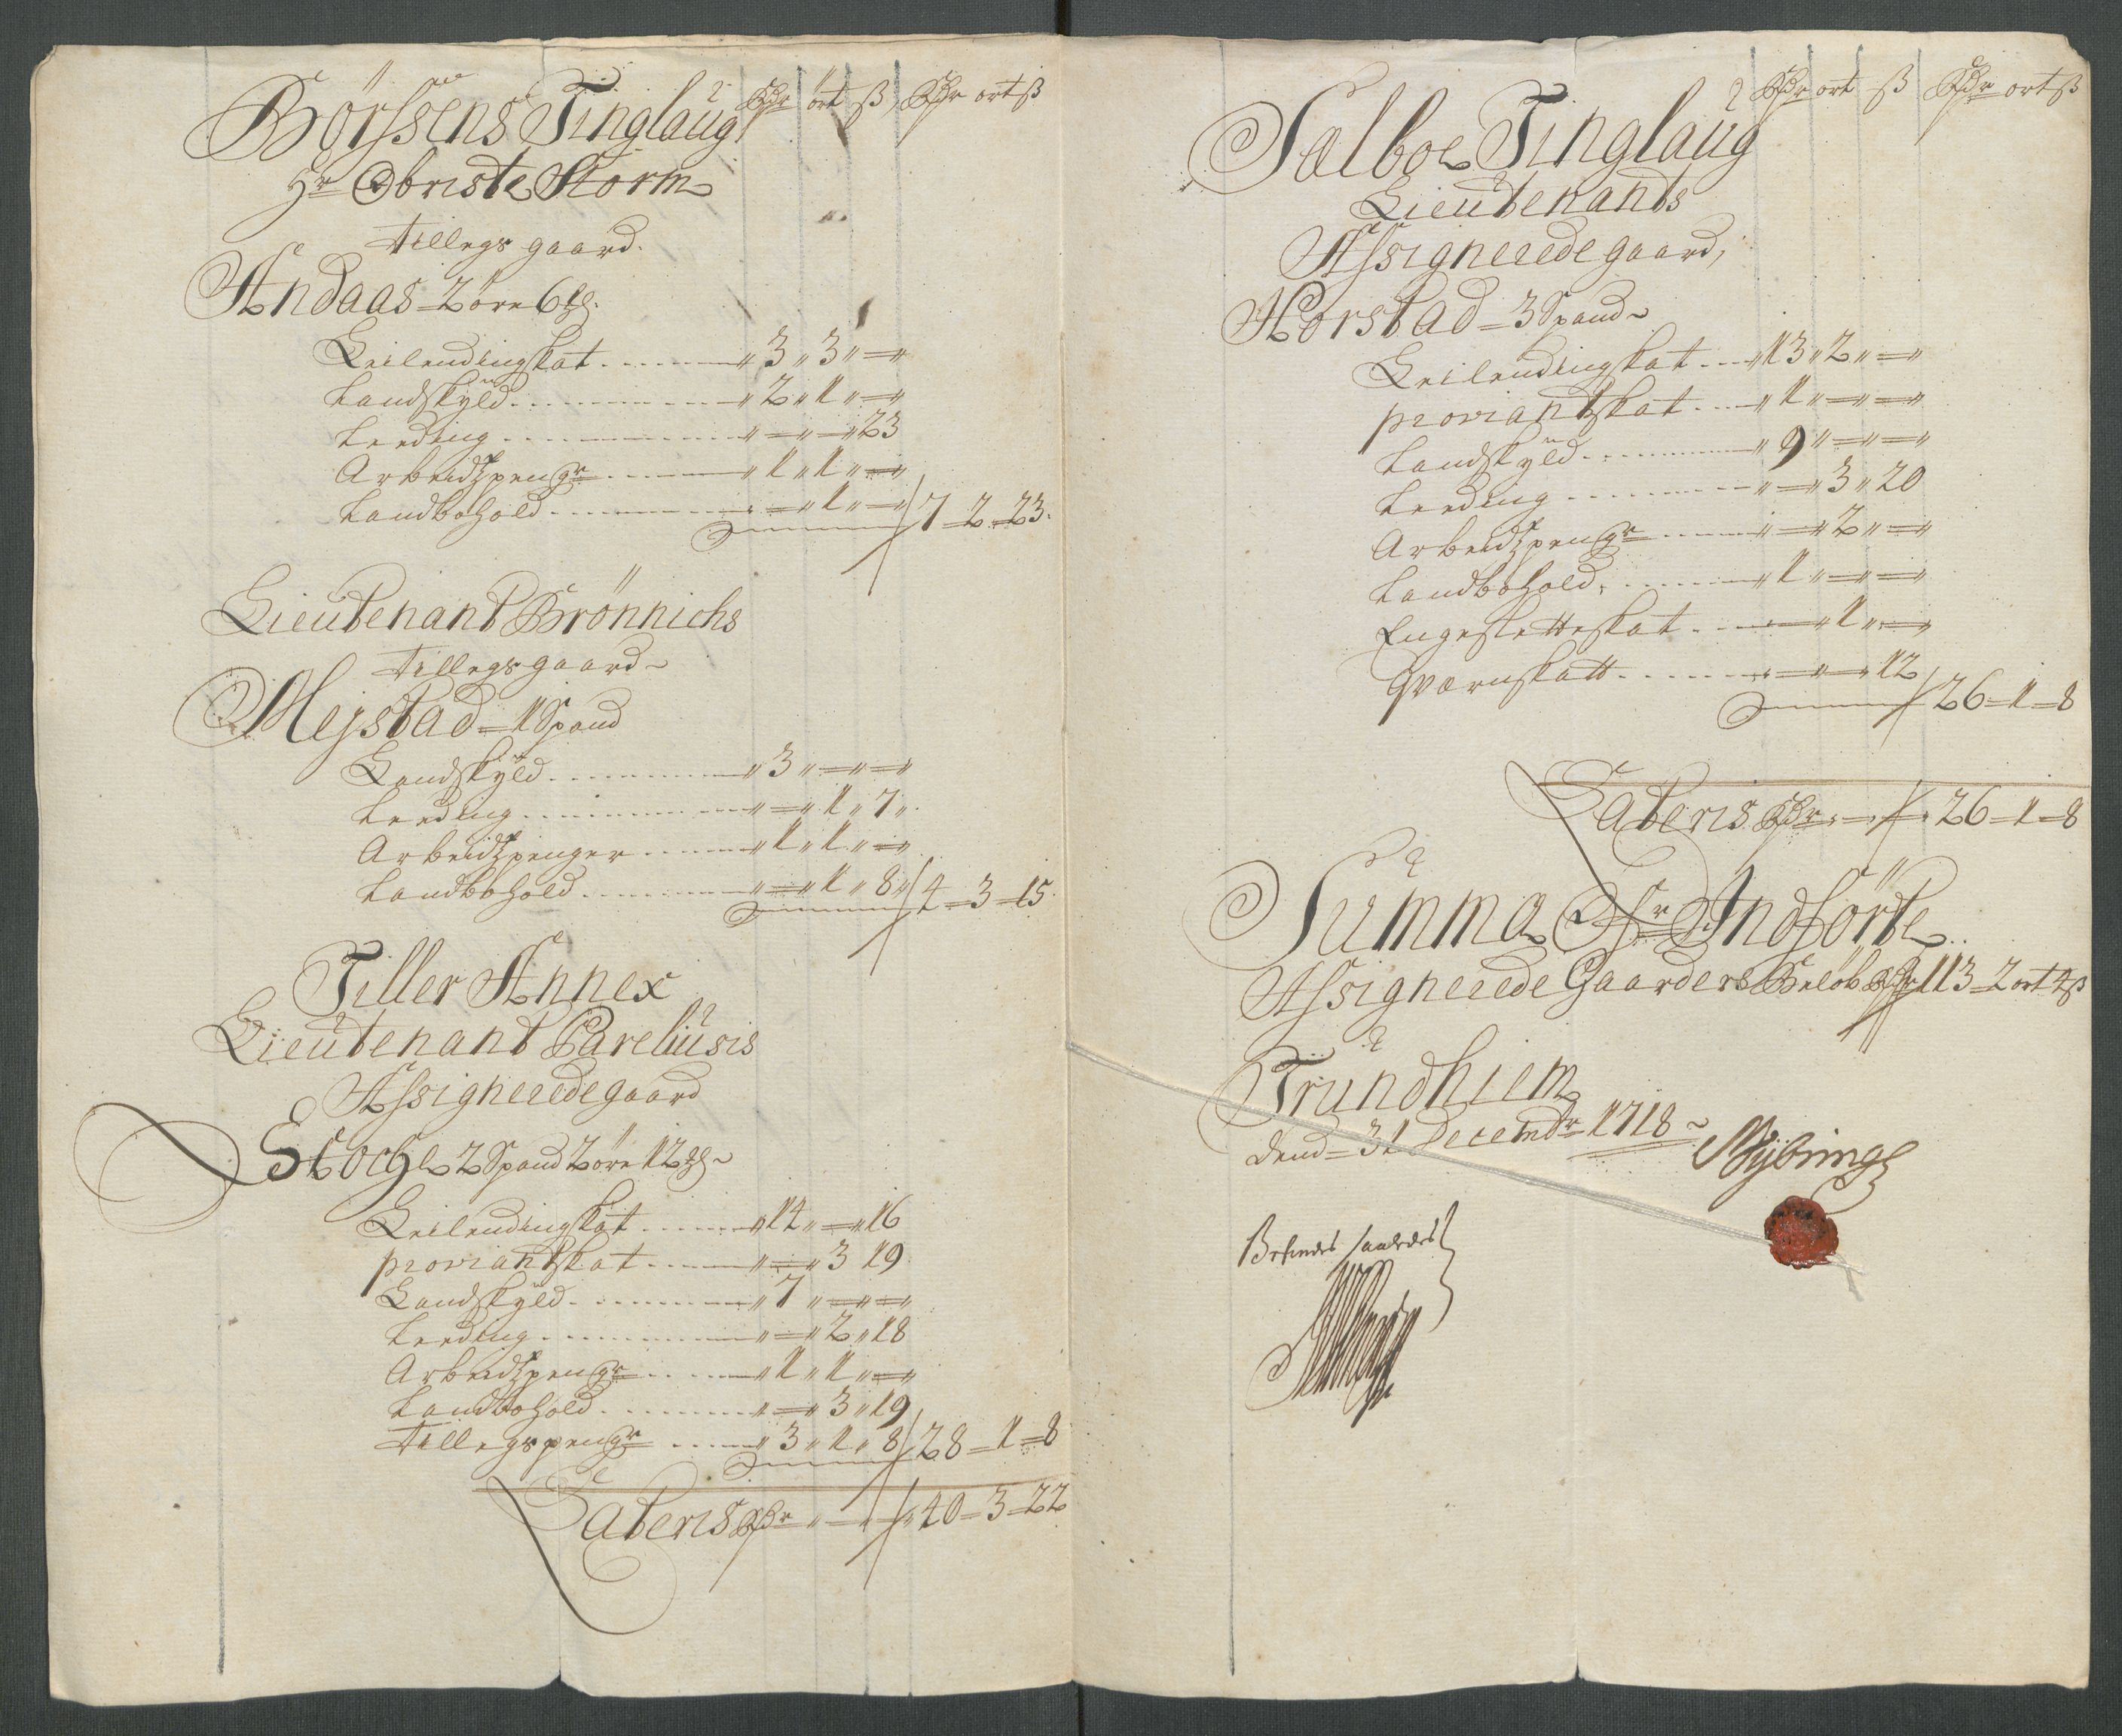 Börssens Tinglaug Rdr ort ß Rdr ort ß
Hr Obriste Storm
Tillegs gaard.
Andaas - 2 öre 6 ml.
Leilendingskat " 3 " 3 " = "
Landskÿld " 2 " 1 " = "
Leeding " = " = " 23
Arbeidspengr " 1 " 1 " = "
Landbohold " = " 1 " = " 7 - 2 - 23.
Lieutenant Brönnichs
Tillegs gaard
Mejstad - 1 Spand
Landskÿld " 3 " = " = "
Leeding " = " 1 " 7 "
Arbeidspenger " 1 " 1 " = "
Landbohold " = " 1 " 8 " 4 - 3 - 15.
Tiller Annex
Lieutenant Pareliusis
Assignerede gaard
Stocke 2 Spand 2 öre 12 ml
Leilendingskat " 14 " = " 16
proviantskat " = " 3 19
Landskÿld " 7 " = " = "
Leeding " = " 2 " 18
Arbeidspengr " 1 " 1 " = "
Landbohold " = " 3 " 19
Tillegspengr " 3 " 1 " 8 28 - 1 - 8
Lateris Rdr 40 - 3 - 22
Sælboe Tinglaug Rdr ort ß Rdr ort ß
Lieutenants
Assignerede gaard,
Horstad - 3 Spand
Leilendingskat " 13 " 2 " = "
proviantskat " 1 " = " = "
Landskÿld " 9 " = " = "
Leeding " = " 3 " 20
Arbeidspengr " = " 2 " = "
Landbohold " 1 " = " = "
Engesletteskat " 1 " = "
Qværnskatt " = " = " 12 26 - 1 - 8
Lateris Rdr 26 - 1 - 8
Summa Indförte
Assignerede Gaarders Belöb Rdr 113 - 2 ort 4 ß
Trundhiem
dend - 31 Decembr 1718
Befindes saaledes